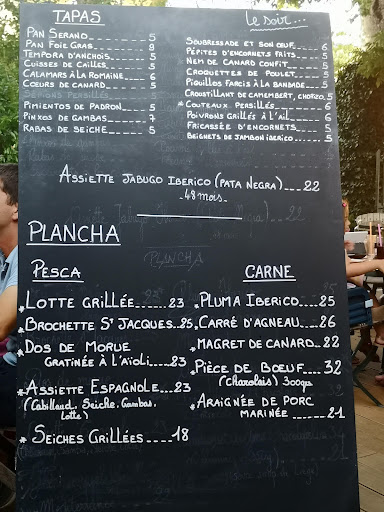 TAPAS
PAN SERANO 5
PAN FOIE GRAS 9
TEMPORA D'ANCHOIS 5
CUISSES DE CAILLES 5
CALAMARS À LA ROMAINE 6
COEURS DE CANARD 5
PIMIENTOS DE PADRON 5
PINXOS DE GAMBAS 7
RABAS DE SEICHE 5
Le soir...
SOUBRESSADE ET SON OEUF 6
PÉPITES D'ENCORNETS FRITS 5
NEM DE CANARD CONFIT 5
CROQUETTES DE POULET 5
PIQUILLOS FARCIS À LA BANDADE 5
CROUSTILLANT DE CAMEMBERT, CHORIZO 5
*COUTEAUX PERSILLÉS 6
POIVRONS GRILLÉS À L'AIL 6
FRICASSÉE D'ENCORNETS 5
BEIGNETS DE JAMBON IBERICO 5
ASSIETTE JABUGO IBERICO (PATA NEGRA) 22
- 48 mois -
PLANCHA
PESCA
*LOTTE GRILLÉE 23
*BROCHETTE ST JACQUES 25
*DOS DE MORUE
GRATINÉE À L'AÏOLI 23
*ASSIETTE ESPAGNOLE 23
(Cabillaud, Seiche, Gambas,
Lotte)
*SEICHES GRILLÉES 18
CARNE
*PLUMA IBERICO 25
*CARRÉ D'AGNEAU 26
*MAGRET DE CANARD 22
*PIÈCE DE BOEUF 32
(Charolais) 300grs
*ARAIGNÉE DE PORC
MARINÉE 21